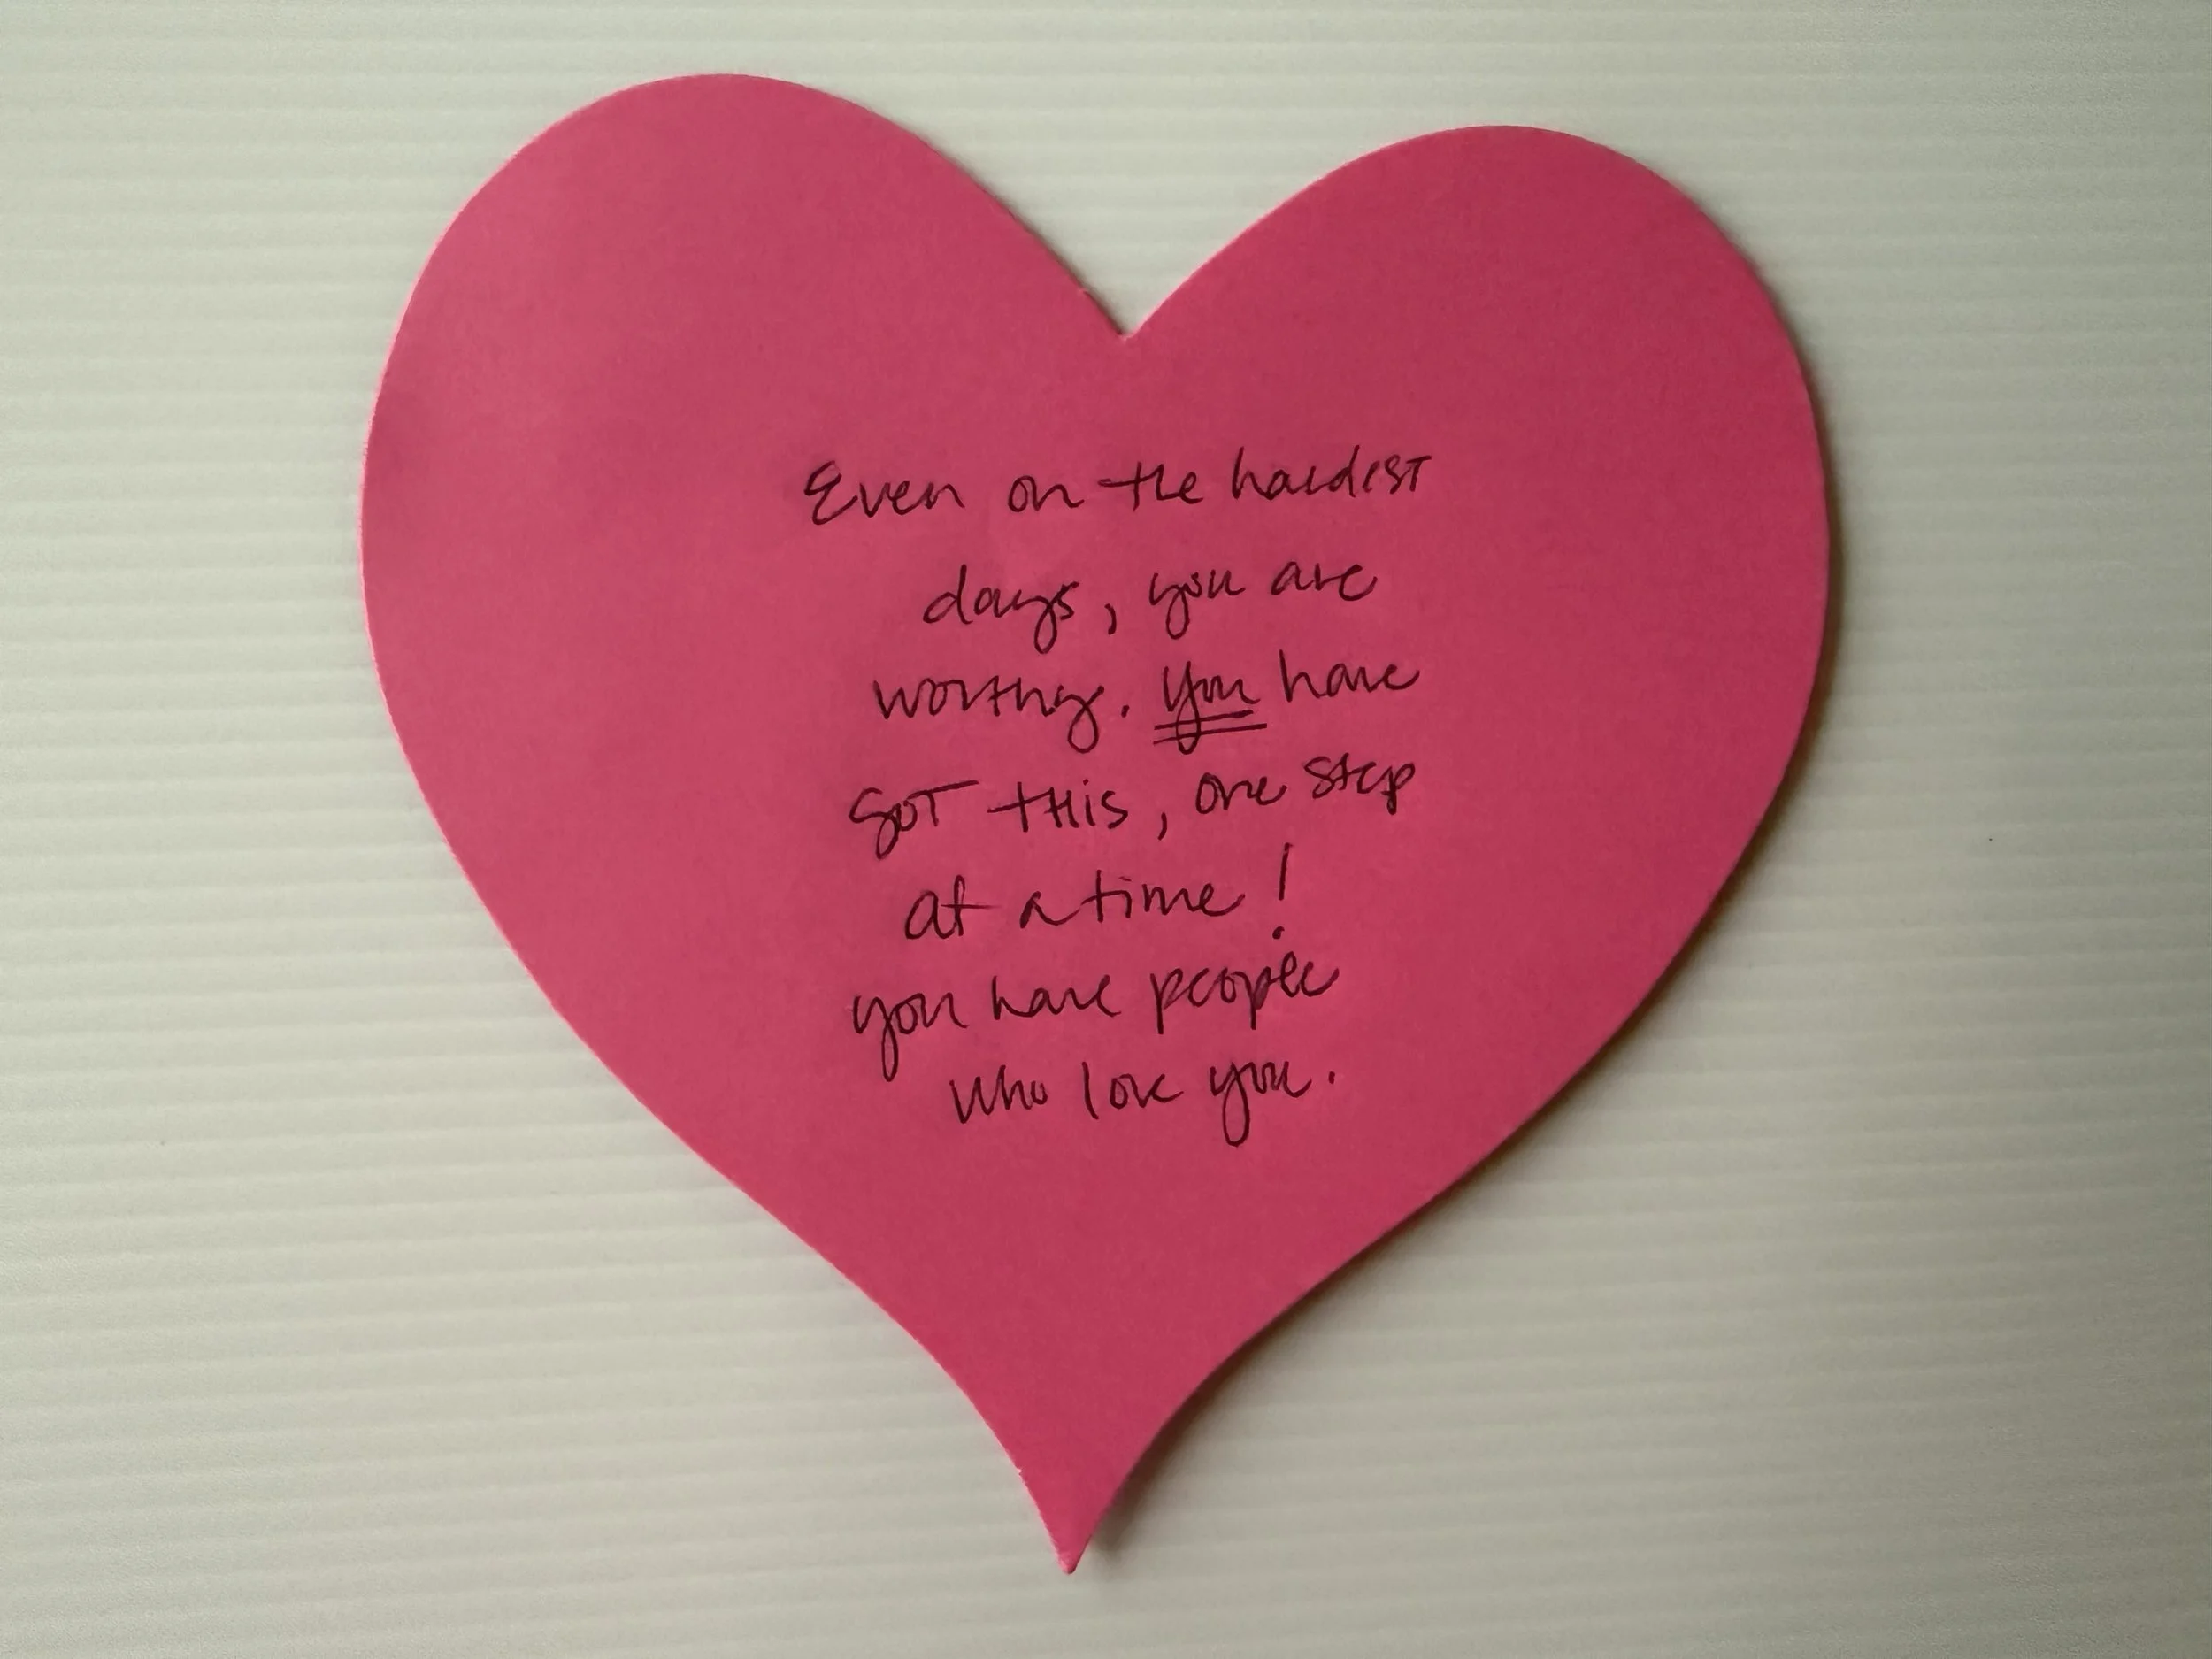 Even on the hardest
days, you are
worthy. You have
GOT THIS, one step
at a time!
you have people
who love you.